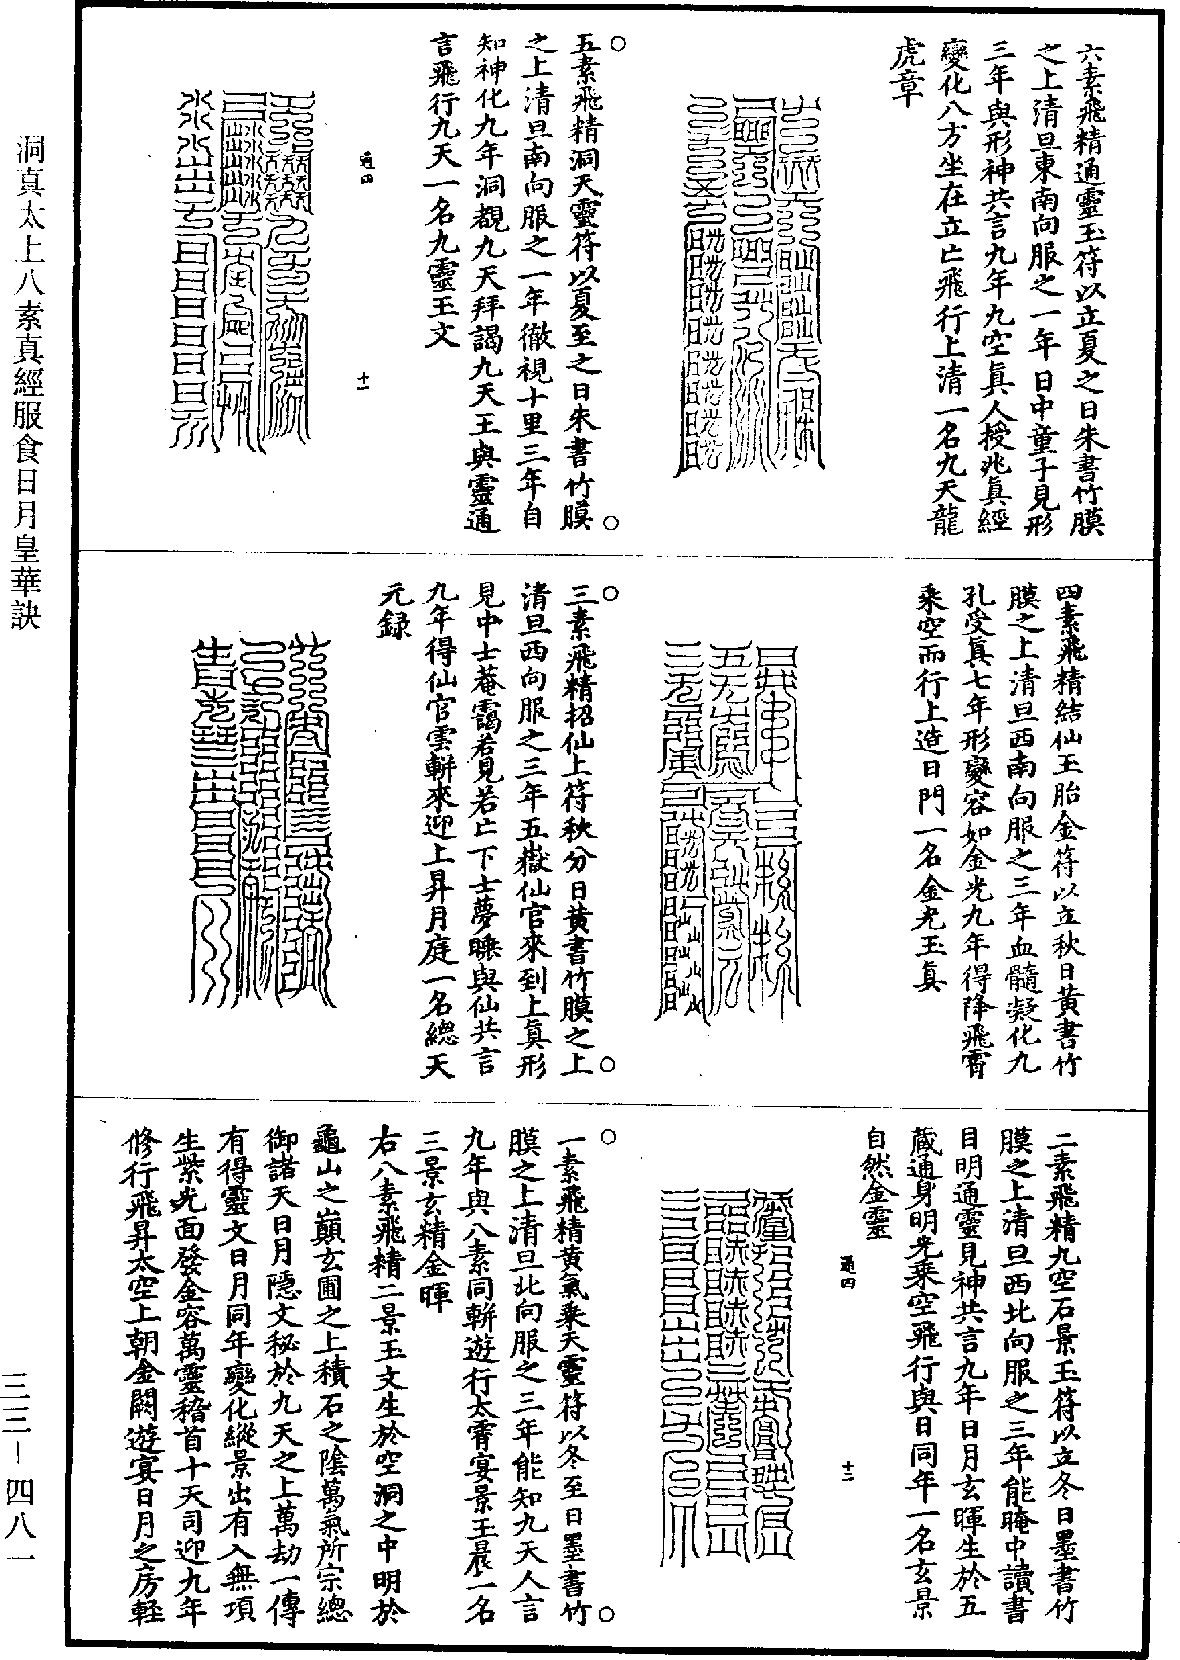 六素飛精通靈玉符以立夏之日朱書竹膜
之上清旦東南向服之一年日中童子見形
三年與形神共言九年九空真人授兆真經
變化八方坐在立亡飛行上清一名九天龍
虎章
五素飛精洞天靈符以夏至之日朱書竹膜
之上清旦南向服之一年徹視十里三年自
知神化九年洞觀九天拜謁九天王與靈通
言飛行九天一名九靈玉文
通四
十一
四素飛精結仙玉胎金符以立秋日黃書竹
膜之上清旦西南向服之三年血髓凝化九
孔受真七年形變容如金光九年得降飛霄
乘空而行上造日門一名金光玉真
三素飛精招仙上符秋分日黃書竹膜之上
清旦西向服之三年五嶽仙官來到上真形
見中士菴靄若見若亡下士夢睡與仙共言
九年得仙官雲軿來迎上昇月庭一名總天
元錄
二素飛精九空石景玉符以立冬日墨書竹
膜之上清旦西北向服之三年能晻中讀書
目明通靈見神共言九年日月玄暉生於五
藏通身明光乘空飛行與日同年一名玄景
自然金靈
通四
十二
一素飛精黄氣乘天靈符以冬至日墨書竹
膜之上清旦北向服之三年能知九天人言
九年與八素同軿遊行太霄宴景王晨一名
三景玄精金暉
右八素飛精二景玉文生於空洞之中明於
龜山之巔玄圃之上積石之陰萬氣所宗總
御諸天日月隱文秘於九天之上萬劫一傳
有得靈文日月同年變化縱景出有入無項
生紫光面發金容萬靈稽首十天司迎九年
修行飛昇太空上朝金闕遊宴日月之房輕
洞真太上八素真經服食日月皇華訣
三三－四八一